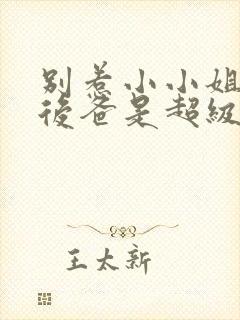 别惹小小姐
後爸是超級
王太新